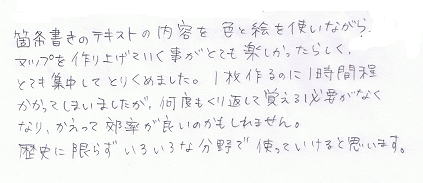 箇条書きのテキストの内容を 色と絵を使いながら、
マップを作り上げていく事がとても楽しかったらしく、
とても集中してとりくめました。1枚作るのに1時間程
かかってしまいましたが、何度もくり返して覚える必要がなく
なり、かえって効率が良いのかもしれません。
歴史に限らずいろいろな分野で使っていけると思います。